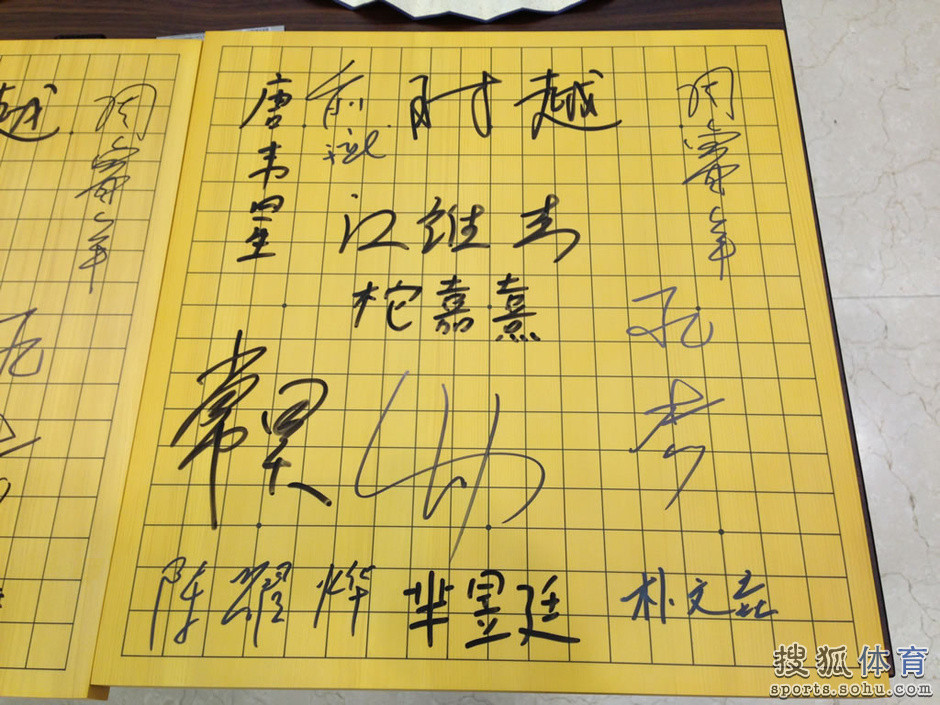 越
周睿羊
唐韦星
俞斌
时越
周睿羊
江维杰
柁嘉熹
孔
常昊
陈耀烨
芈昱廷
朴文垚
搜狐体育
sports.sohu.com